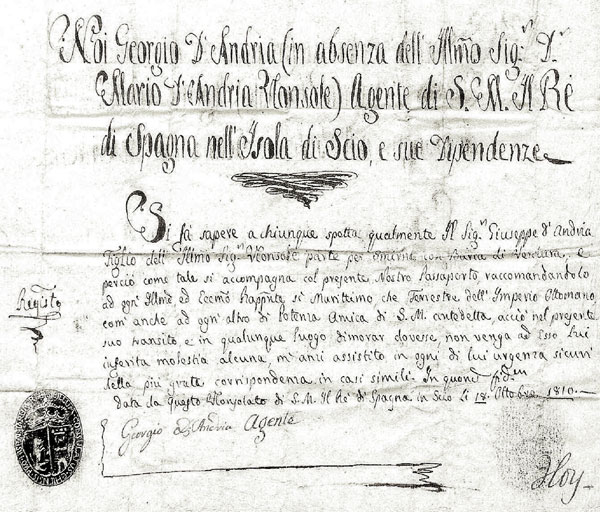 Noi Georgio D'Andria (in absenza dell' Illmo Sigr. Dr.
Mario D'Andria Konsole) Agente di S. M. Il Rè
di Spagna nell'Isola di Scio, e sue Dipendenze
Si fà sapere a chiunque spetta, qualmente Il Sigr. Giuseppe d'Andria
Figlio dell' Illmo Sigr. Konsole parte per Smirne con Barca di Verdura, e
perciò come tale si accompagna col presente Nostro Pasaporto raccomandandolo
Registo
ad ogni Illmo ed Eccmo Rappnte si Marittimo che Terrestre dell' Imperio Ottomano,
com' anche ad ogni altro di Potenza Amica di S. M. antedetta, acciò nel presente
suo transito, e in qualunque luogo dimorar dovesse, non venga ad Esso Lui
inferita molestia alcuna, m'anzi assistito in ogni di lui urgenza sicuri
della più grata corrispondenza in casi simili. In quorum fidem
Data da questo Konsolato di S. M. Il Rè di Spagna in Scio Li 18. Ottobre 1810.
Georgio d'Andria Agente